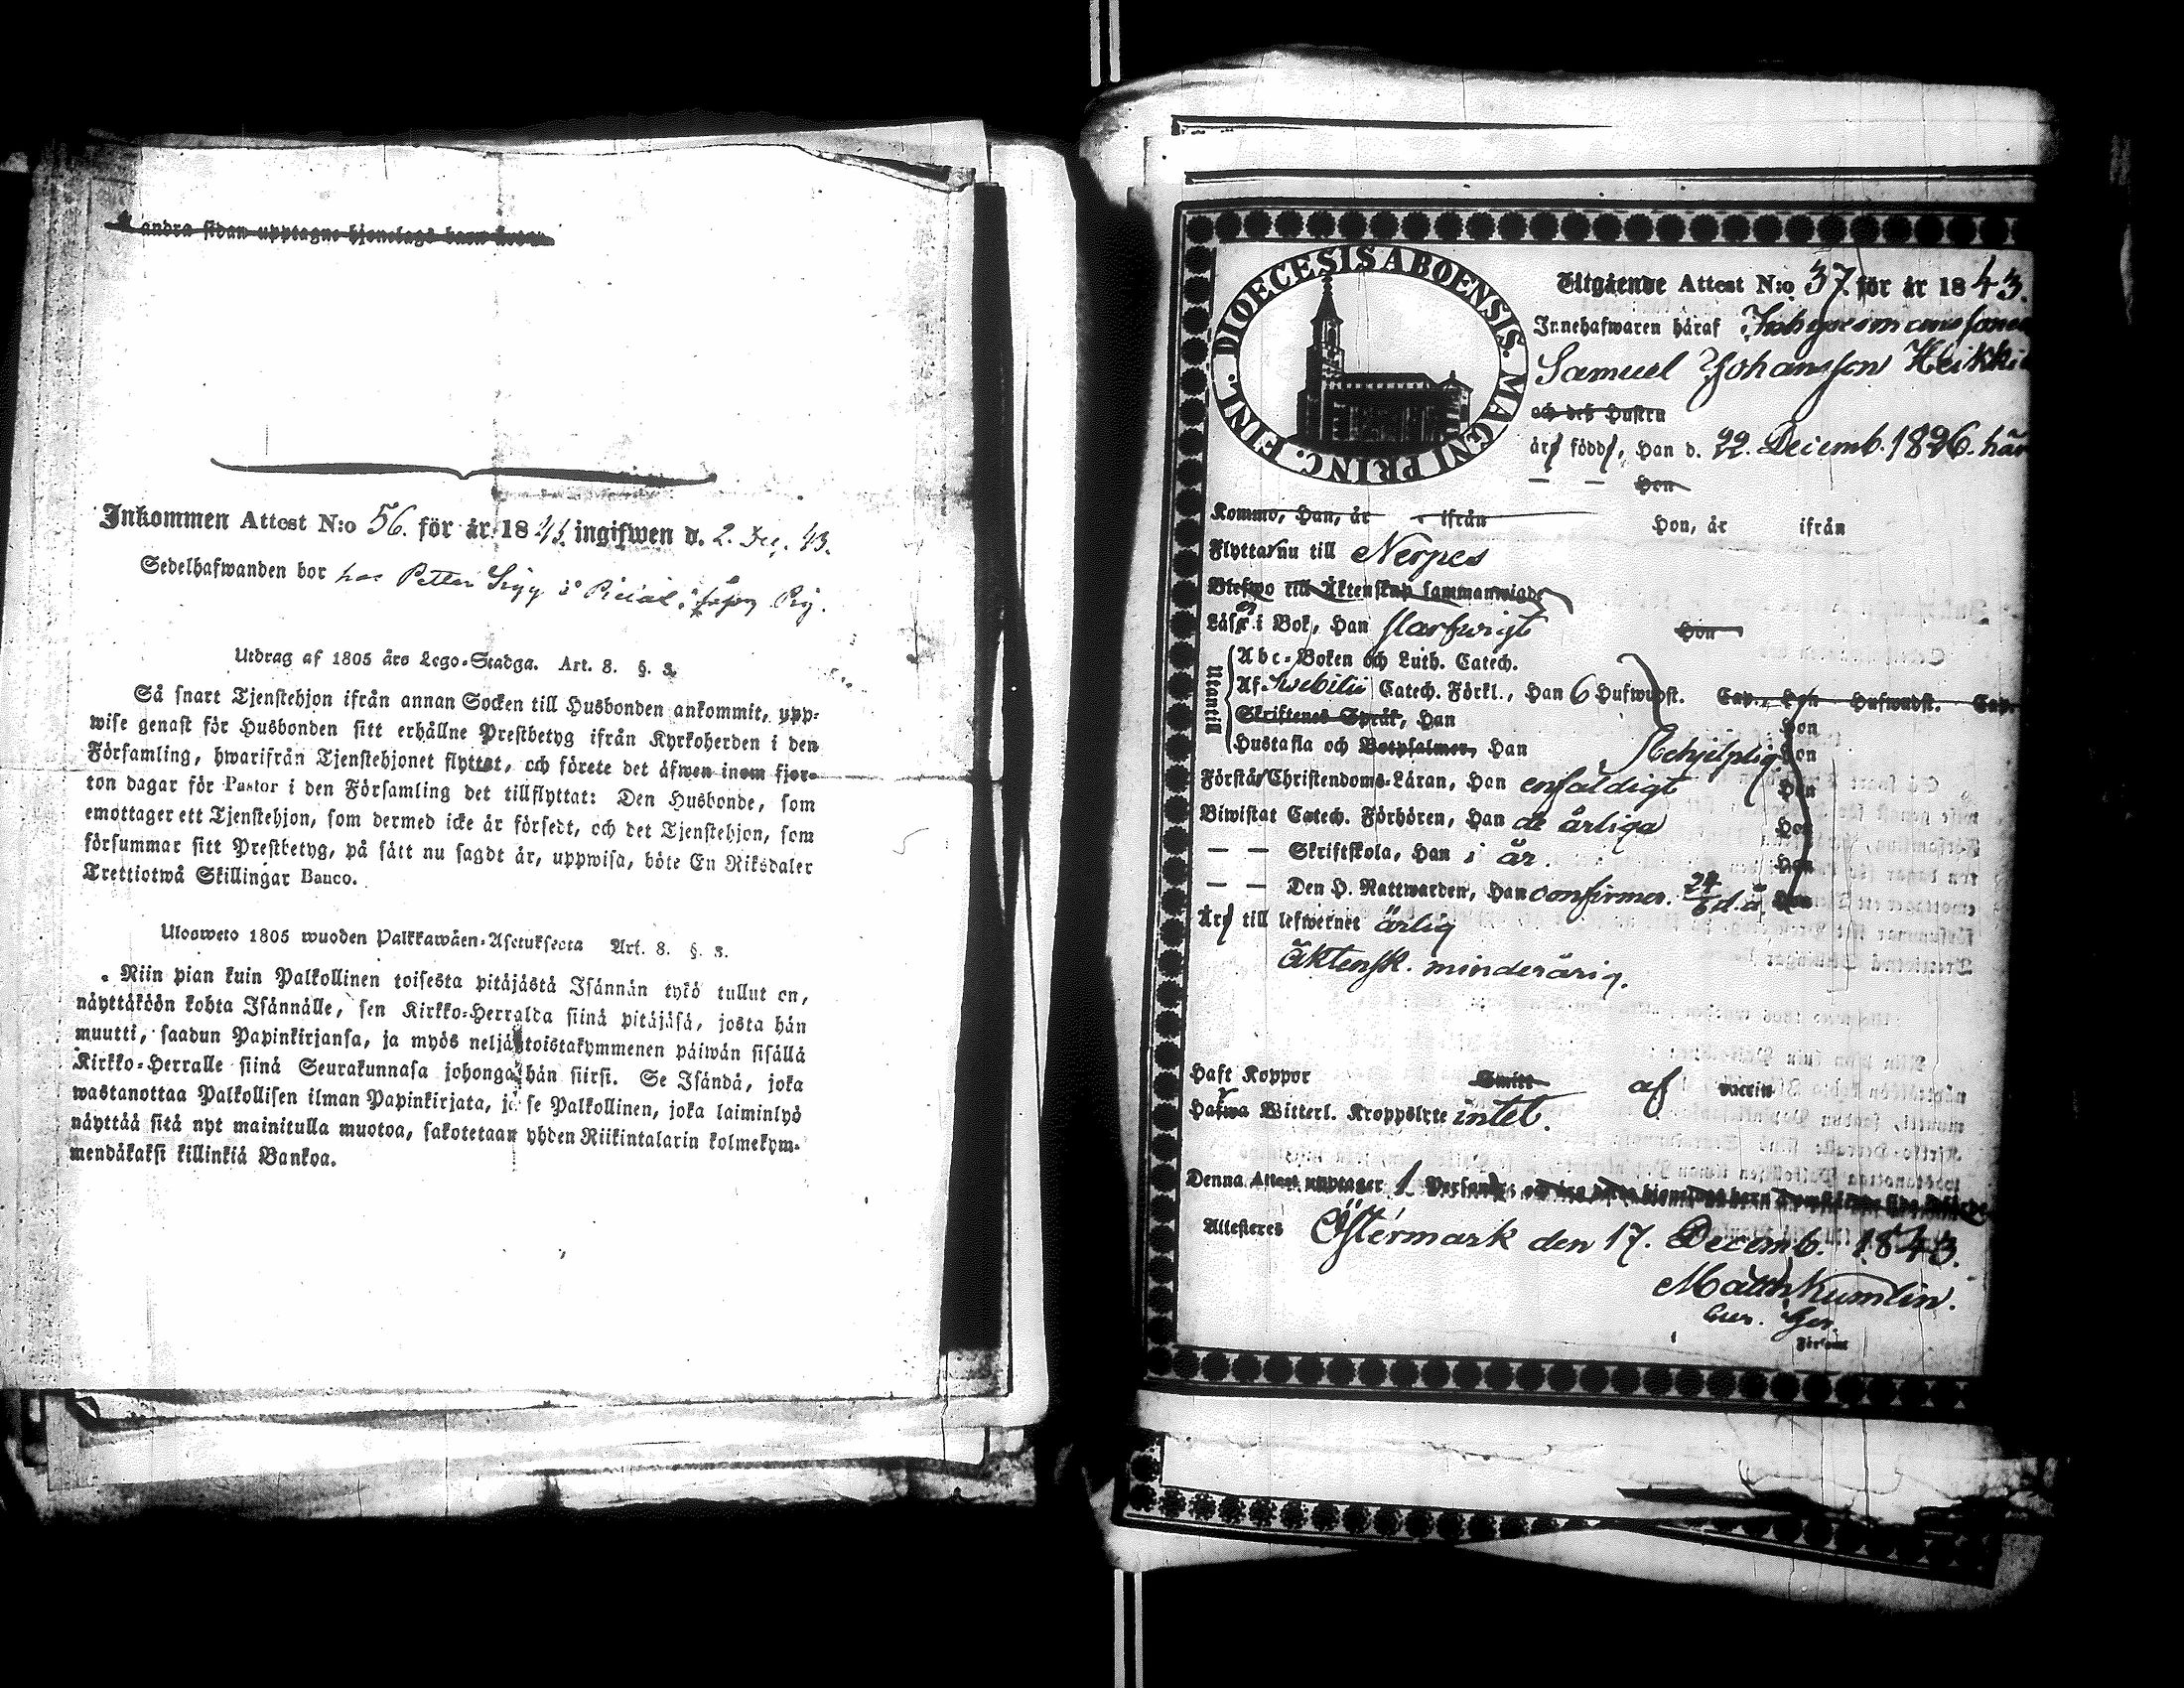 andra sidan upptagne hjonelags barn
Inkommen Attest N:o 56. för år 1843 ingifwen d. 2. Dec. 43.
Sedelhafwanden bor hos Petter Sigg i
Utdrag af 1805 års Lego-Stadga. Art. 8. §. 3.
Så snart Tjenstehjon ifrån annan Socken till Husbonden ankommit, upp-
wise genast för Husbonden sitt erhållne Prestbetyg ifrån Kyrkoherden i den
Församling, hwarifrån Tjenstehjonet flyttat, och förete det äfwen inom fjor-
ton dagar för Pastor i den Församling det tillflyttat: Den Husbonde, som
emottager ett Tjenstehjon, som dermed icke är försedt, och det Tjenstehjon, som
försummar sitt Prestbetyg, på sätt nu sagdt är, uppwisa, böte En Riksdaler
Trettiotwå Skillingar Banco.
Ulosweto 1805 wuoden Palkkawäen-Asetuksesta Art. 8. §. 3.
Niin pian kuin Palkollinen toisesta pitäjästä Isännän tykö tullut on,
näyttäköön kohta Isännälle, sen Kirkko-Herralda siinä pitäjäsä, josta hän
muutti, saadun Papinkirjansa, ja myös neljäntoistakymmenen päiwän sisällä
Kirkko-Herralle siinä Seurakunnasa johonga hän siirsi. Se Isändä, joka
wastanottaa Palkollisen ilman Papinkirjata, ja se Palkollinen, joka laiminlyö
näyttää sitä nyt mainitulla muotoa, sakotetaan yhden Riikintalarin kolmekym-
mendäkaksi killinkiä Bankoa.
DIOECESIS ABOENSIS. MAGNI PRINC. FINL.
Utgående Attest N:o 37. för år 1843.
Innehafwaren häraf
Samuel Johansson Heikki
och deß Hustru
är född, Han d. 22. Decemb. 1826. här
— — Hon
Kommo, Han, år ifrån Hon, år ifrån
Flyttar nu till Nerpes
Blefwo till Äktenskap sammanwigde
Läser i Bok, Han slarfwigt Hon
Utantill
Abc-Boken och Luth. Catech.
Af Swebilii Catech. Förkl., Han 6 Hufwudst. Cap., Hon Hufwudst. Cap.
Skriftenes Språk, Han Hon
Hustafla och Botpsalmer, Han behjelplig Hon
Förstår Christendoms-Läran, Han enfaldigt Hon
Biwistat Catech. Förhören, Han de årliga Hon
— — Skriftskola, Han i år. Hon
— — Den H. Nattwarden, Han confirmer. 24/6 d. å. Hon
Är till lefwernet ärlig
Äktensk. minderårig.
Haft Koppor Smitt af vaccin
Hafwa Witterl. Kroppslyte intet.
Denna Attest upptager 1 Person
Attesteres Östermark den 17. Decemb. 1843.
Matth Kumlin.